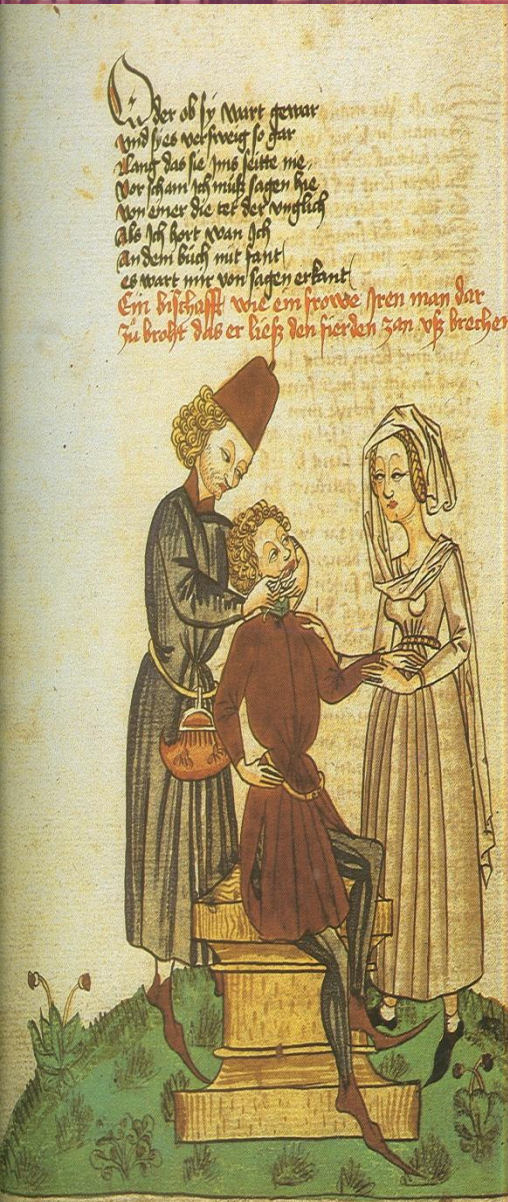 Oder ob sy wart gewar
vnd sy es versweig so gar
Lang das sie Ims seitte nie
Vor scham Ich muß sagen hie
von einer die tet der vnglich
Als Ich hort wan Ich
An dem büch nit fant
es wart mir von sagen erkant
Ein bischafft wie ein frowe Iren man dar
zů broht das er ließ den fierden zan vß brechen